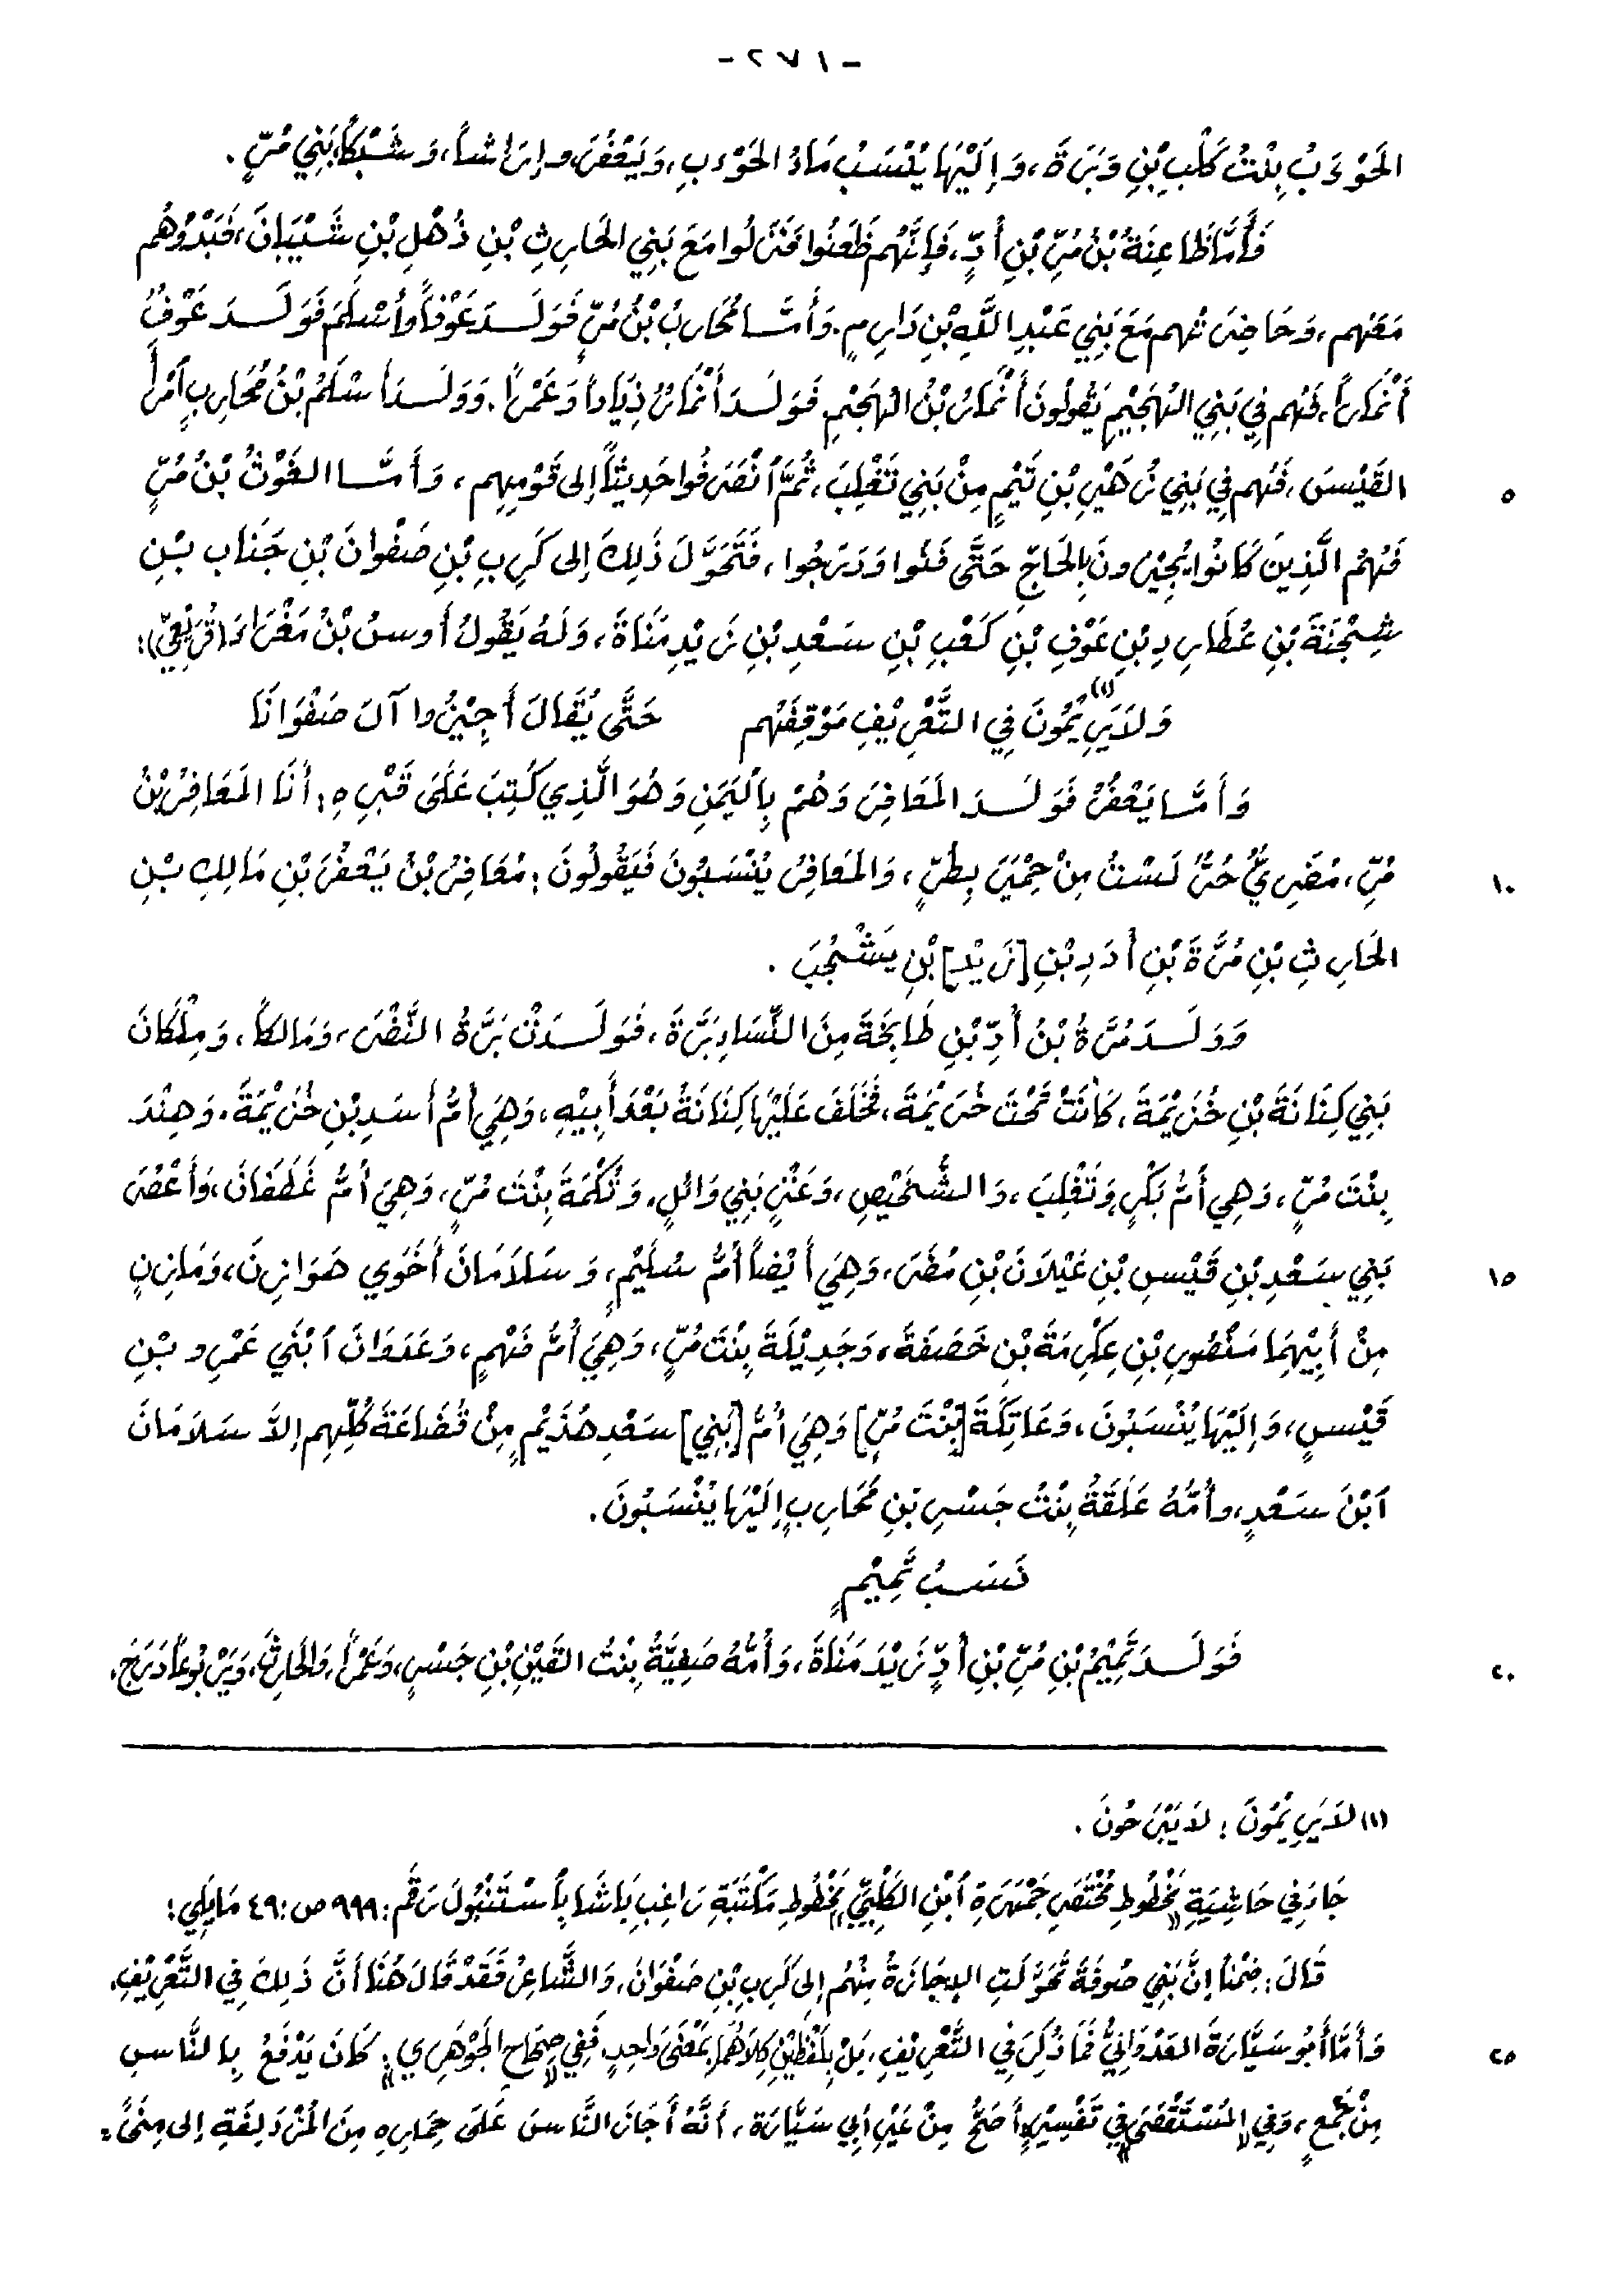 - ٢٧١ -
الحَوْءَبُ بِنْتُ كَلْبِ بْنِ وَبَرَةَ، وَإِلَيْهَا يُنْسَبُ مَاءُ الحَوْءَبِ، وَيَعْفُرَ، وإرَاشاً، وَشَبَكاً، بَنِي مُرٍّ.
فَأَمَّا ظَاعِنَةُ بْنُ مُرِّ بْنِ أُدٍّ، فَإِنَّهُم ظَعَنُوا فَنَزَلُوا مَعَ بَنِي الحَارِثِ بْنِ ذُهْلِ بْنِ شَيْبَانَ، فَبَدْوُهُم
مَعَهُم، وَحَاضِرَتُهم مَعَ بَنِي عَبْدِ اللَّهِ بْنِ دَارِمٍ. وَأَمَّا مُحَارِبُ بْنُ مُرٍّ فَوَلَدَ عَوْفاً وأَسْلَمَ، فَوَلَدَ عَوْفُ
أَنْمَاراً، فَهُم فِي بَنِي الهُجَيْمِ يَقُولُونَ أَنْمَارُ بْنُ الهُجَيْمِ. فَوَلَدَ أَنْمَارُ ذِيَاداً وَعَمْراً. وَوَلَدَ أَسْلَمُ بْنُ مُحَارِبٍ آمْرَأَ
القَيْسَ، فَهُم فِي بَنِي زُهَيْرِ بْنِ تَيْمٍ مِنْ بَنِي تَغْلِبَ، ثُمَّ آنْصَرَفُوا حَدِيثاً إلى قَوْمِهِم، وَأَمَّا الغَوْثُ بْنُ مُرٍّ
٥
فَهُمُ الَّذِينَ كَانُوا يُجِيْزُونَ بِالحَاجِّ حَتَّى فَنَوا وَدَرَجُوا، فَتَحَوَّلَ ذَلِكَ إلى كَرِبِ بْنِ صَفْوانَ بْنِ جَنَابِ بْنِ
شِجْنَةَ بْنِ عُطَارِدِ بْنِ عَوْفِ بْنِ كَعْبِ بْنِ سَعْدِ بْنِ زَيْدِ مَنَاةَ، وَلَهُ يَقُولُ أَوسُ بْنُ مَغْرَاءَ (قُرَيْعِيّ):
وَلاَ يَرِيْمُونَ (١) فِي التَّعْرِيْفِ مَوْقِفَهُم    حَتَّى يُقَالَ أَجِيْزُوا آلَ صَفْوَانَا
وَأَمَّا يَعْفُرُ فَوَلَدَ المَعَافِرَ وَهُمْ بِالْيَمَنِ وَهُوَ الَّذِي كُتِبَ عَلَى قَبْرِهِ: أَنَا المَعَافِرُ بْنُ
مُرِّ، مُضَرِيٌّ حُرٌّ لَسْتُ مِنْ حِمْيَرَ بِطُرٍّ، وَالمَعَافِرُ يُنْسَبُونَ فَيَقُولُونَ: مُعَافِرُ بْنُ يَعْفُرَ بْنِ مَالِكِ بْنِ
١٠
الحَارِثِ بْنِ مُرَّةَ بْنِ أُدَدِ بْنِ [زَيْدِ] بْنِ يَشْجُبَ.
وَوَلَدَ مُرَّةُ بْنُ أُدِّ بْنِ طَابِخَةَ مِنَ النِّسَاءِ بَرَّةَ، فَوَلَدَتْ بَرَّةُ النَّضْرَ، وَمَالكاً، وَمِلْكَانَ
بَنِي كِنَانَةَ بْنِ خُزَيْمَةَ، كَانَتْ تَحْتَ خُزَيْمَةَ، فَخَلَفَ عَلَيْهَا كِنَانَةُ بَعْدَ أَبِيْهِ، وَهِيَ أُمُّ أَسَدِ بْنِ خُزَيْمَةَ. وَهِنْدَ
بِنْتَ مُرٍّ، وَهِي أُمُّ بَكْرٍ وَتَغْلِبَ، وَالشُّخَيْصِ، وَعَنْزٍ بَنِي وَائِلٍ. وَتُكْمَةَ بِنْتَ مُرٍّ، وَهِيَ أُمُّ غَطَفَانَ، وَأَعْصُرَ
بَنِي سَعْدِ بْنِ قَيْسِ بْنِ عَيْلاَنَ بْنِ مُضَرَ، وَهِيَ أَيْضاً أُمُّ سُلَيْمٍ، وَسَلاَمَانَ أَخَوِي هَوَازِنَ، وَمَازِنٍ
١٥
مِنْ أَبِيْهِمَا مَنْصُورِ بْنِ عِكْرِمَةَ بْنِ خَصَفَةَ، وَجَدِيْلَةَ بِنْتَ مُرٍّ، وَهِيَ أُمُّ فَهْمٍ، وَعَدَوَانَ آبْنَي عَمْرِو بْنِ
قَيْسٍ، وَإِلَيْهَا يُنْسَبُونَ، وَعَاتِكَةَ [بِنْتَ مُرٍّ] وَهِيَ أُمُّ [بَنِي] سَعْدِ هُذَيْمٍ مِنْ قُضَاعَةَ كُلِّهِم إلاَّ سَلاَمَانَ
آبْنَ سَعْدٍ، وأُمُّهُ عَلَقَةُ بِنْتُ جَسْرِ بْنِ مُحَارِبٍ إِلَيْهَا يُنْسَبُونَ.
نَسَبُ تَمِيْمٍ
فَوَلَدَ تَمِيْمُ بْنِ مُرِّ بْنِ أُدٍّ زَيْدَ مَنَاةَ، وَأُمُّهُ صَفِيَّةُ بِنْتُ القَيْنِ بْنِ جَسْرٍ، وَعَمْراً، وَالحَارِثَ، وَيَرْبُوعاً دَرَجَ،
٢٠
(١) لاَ يَرِيْمُونَ: لاَ يَبْرَحُونَ.
جَاءَ فِي حَاشِيَةِ «مَخْطُوطِ مُخْتَصَرِ جَمْهَرَةِ آبْنِ الكَلْبِيِّ» مَخْطُوطِ مَكْتَبَةِ رَاغِبِ بَاشَا بِآسْتَنْبُولَ رَقَم: ٩٩٩ ص: ٤٩ مَا يَلِي:
قَالَ: ضِمْناً إنَّ بَنِي صُوفَةَ تَحَوَّلَتِ الإجَازَةُ مِنْهُم إلى كَرِبِ بْنِ صَفْوَانَ، وَالشَّاعِرُ فَقَدْ قَالَ هُنَا أَنَّ ذَلِكَ فِي التَّعْرِيْفِ.
وَأَمَّا أَبُو سَيَّارَةَ العَدْوَانِيُّ فَمَا ذُكِرَ فِي التَّعْرِيْفِ، بَلْ بِلَفْظَيْنِ كِلاَهُمَا بِمَعْنَى وَاحِدٍ، فَفِي «صِحَاحِ الجَوْهَرِي»: كَانَ يَدْفَعُ بِالنَّاسِ
٢٥
مِنْ جُمَعٍ، وَفِي «المُسْتَقْصَى» فِي تَفْسِيْرِ أَصَحُّ مِنْ عَيْرِ أَبِي سَيَّارَةَ، أَنَّهُ أَجَازَ النَّاسَ عَلَى حِمَارِهِ مِنَ المُزْدَلِفَةِ إلى مِنًى =